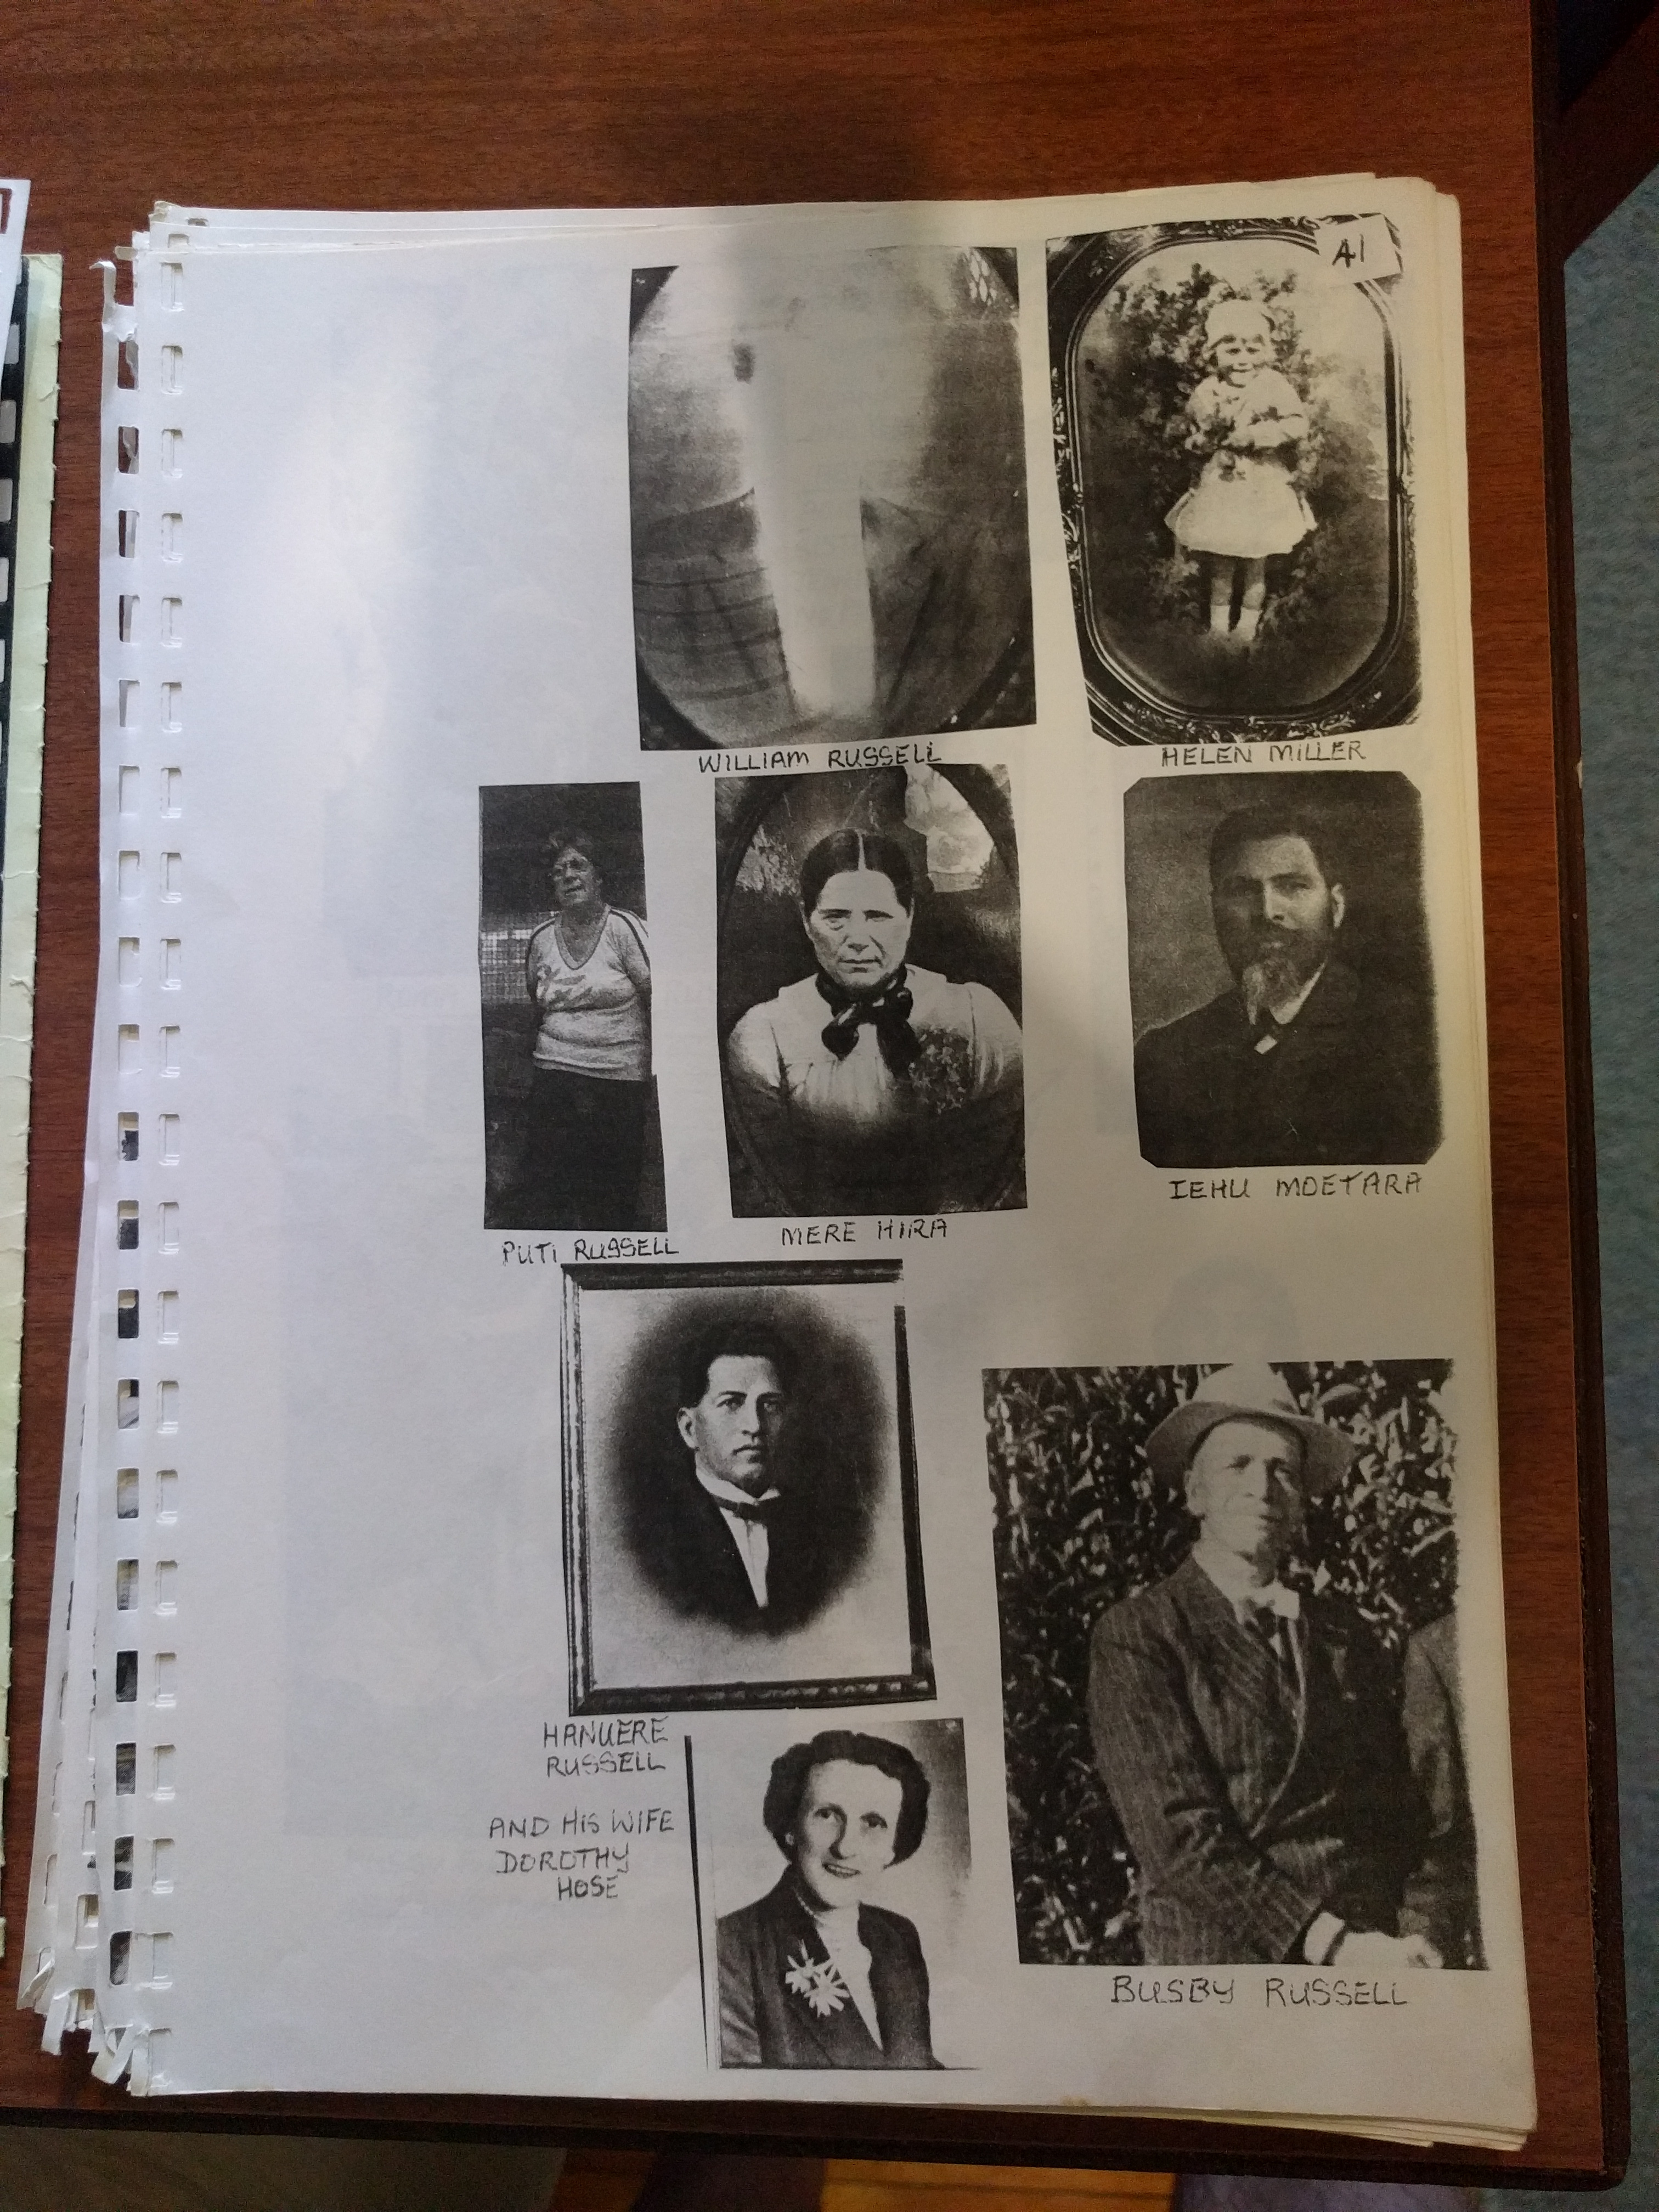 A1
WILLIAM RUSSELL
HELEN MILLER
PUTI RUSSELL
MERE HIRA
IEHU MOETARA
HANUERE
RUSSELL
AND HIS WIFE
DOROTHY
HOSE
BUSBY RUSSELL